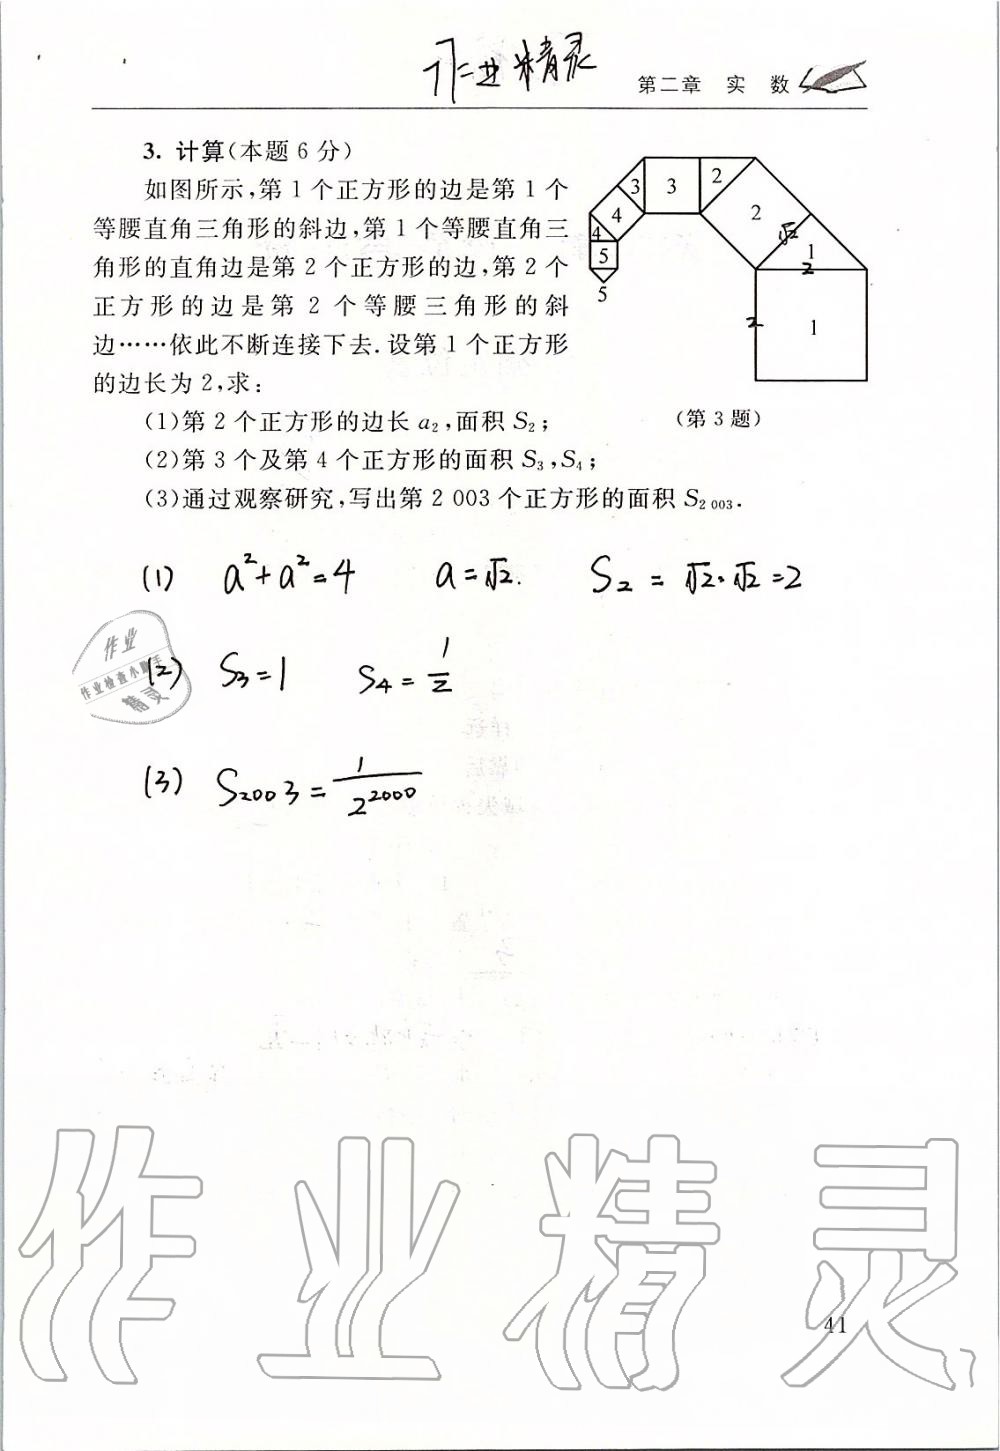 作业精灵
第二章 实 数
3. 计算(本题 6 分)
如图所示,第 1 个正方形的边是第 1 个
等腰直角三角形的斜边,第 1 个等腰直角三
角形的直角边是第 2 个正方形的边,第 2 个
正方形的边是第 2 个等腰三角形的斜
边……依此不断连接下去.设第 1 个正方形
的边长为 2,求:
3
3
2
4
2
√2
4
1
5
2
5
2
1
(1)第 2 个正方形的边长 a₂,面积 S₂;
(第 3 题)
(2)第 3 个及第 4 个正方形的面积 S₃,S₄;
(3)通过观察研究,写出第 2 003 个正方形的面积 S₂ ₀₀₃.
(1) a²+a²=4 a=√2. S₂ = √2·√2 =2
作业
作业检查小助手
精灵
(2) S₃=1 S₄=1/2
(3) S₂₀₀₃=1/2²⁰⁰⁰
作业精灵
41